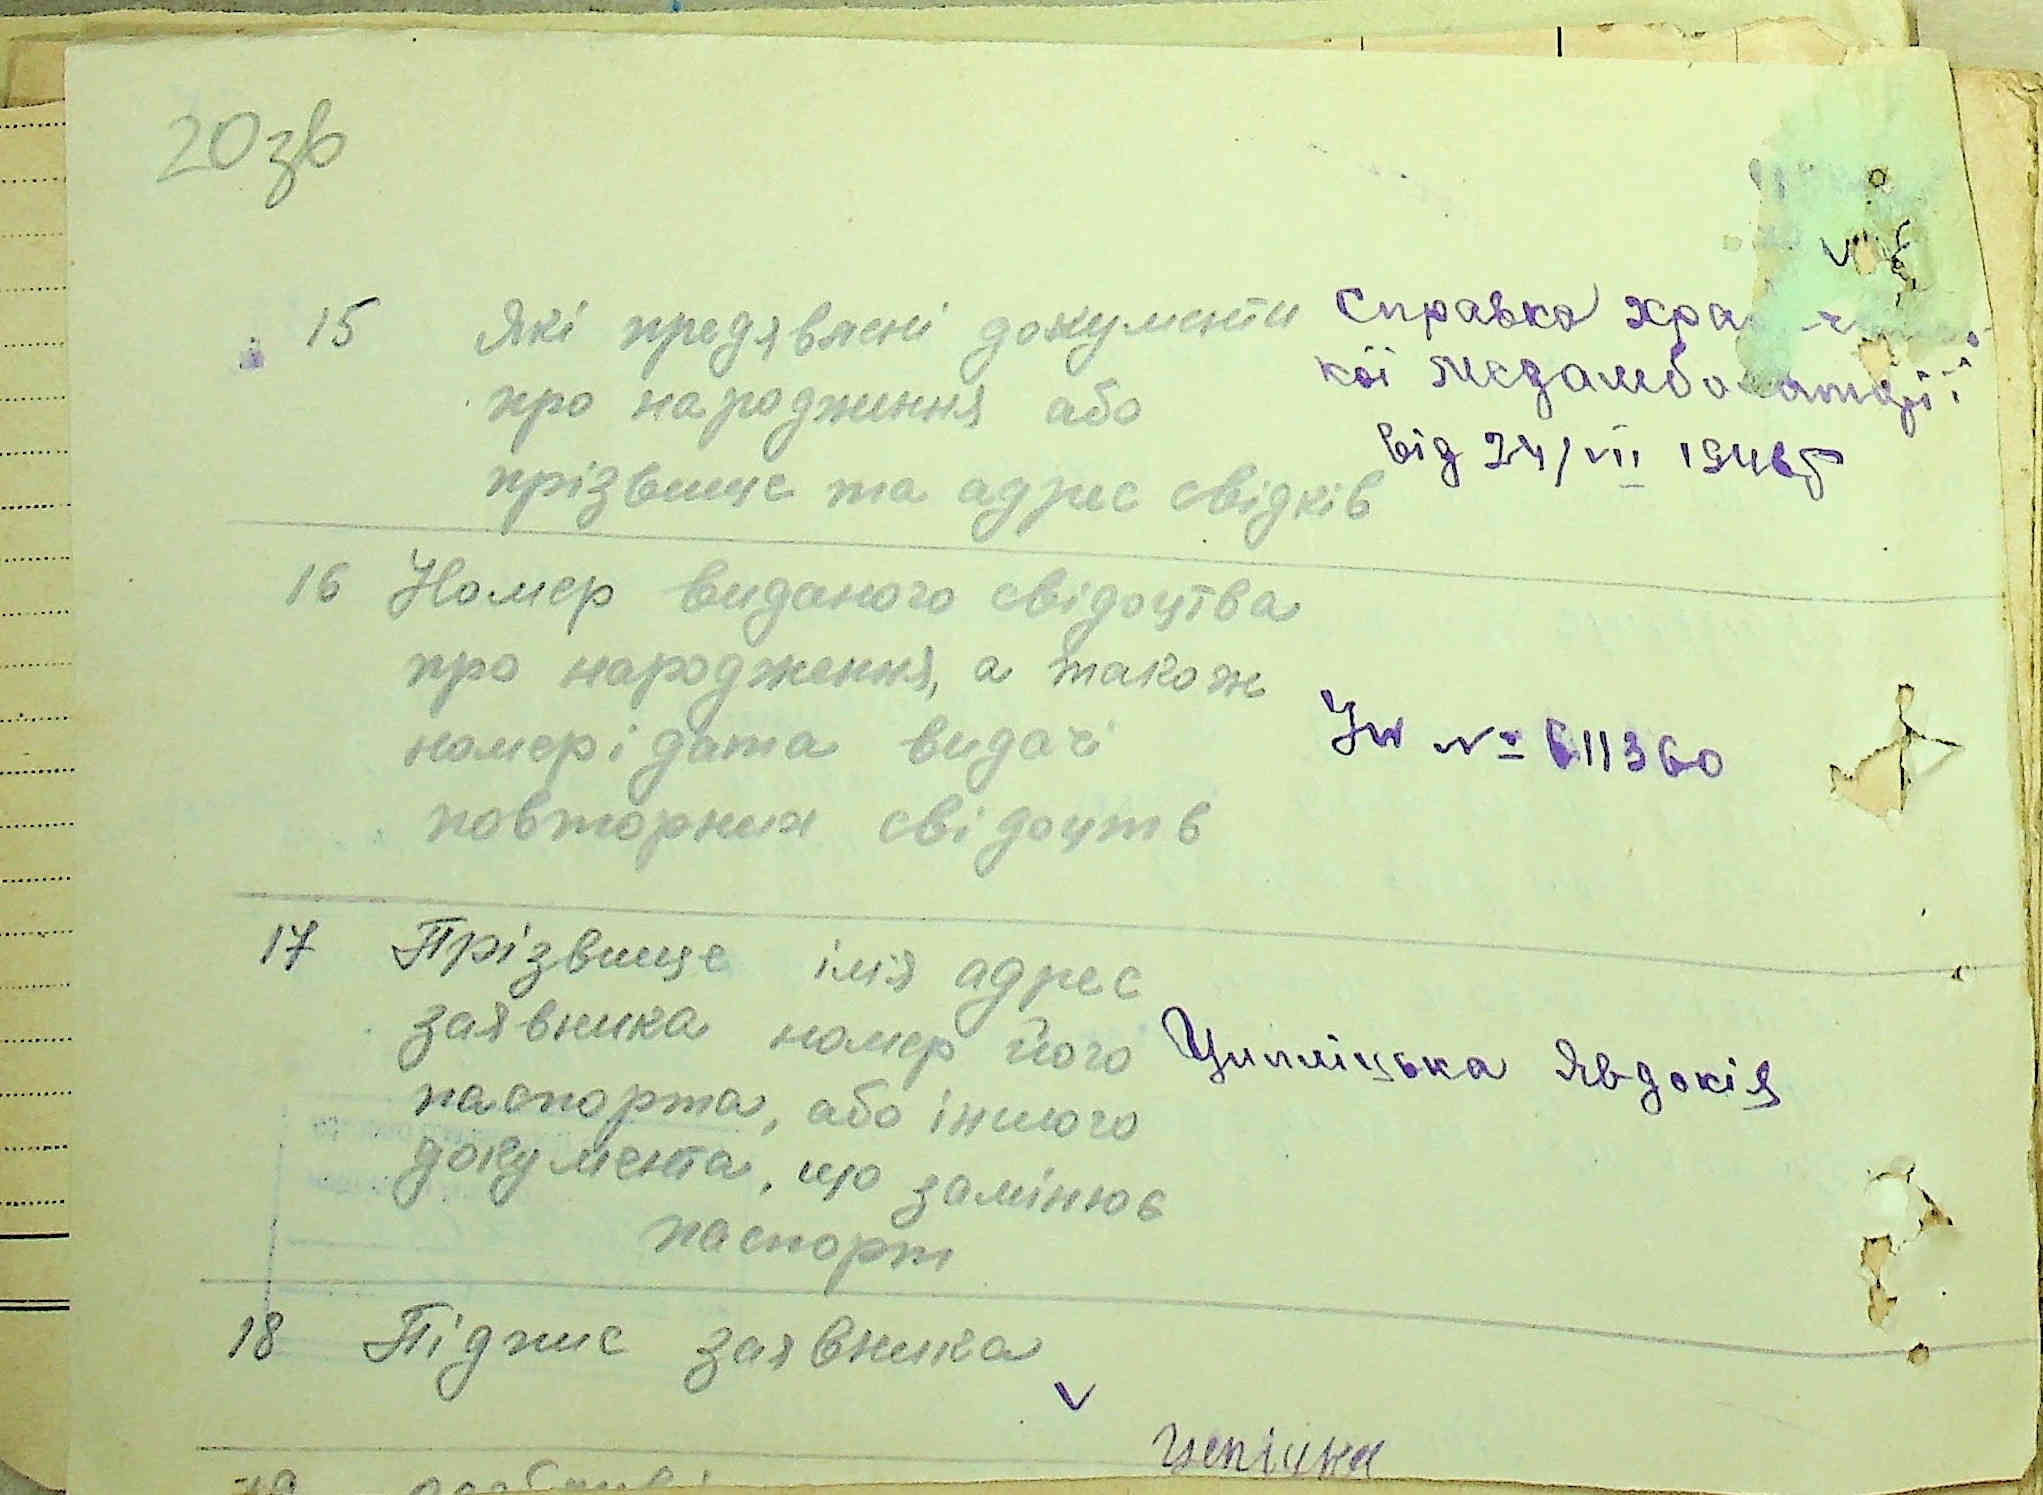 20зв
15 Які предявлені документи Справка хра
про народження або кої Медамбо аторії
прізвище та адрес свідків від 24/VII 1946р
16 Номер виданого свідоцтва
про народження, а також
номер і дата видачі № 611360
повторних свідоцтв
17 Прізвище ім'я адрес
заявника номер його Циплицька Явдокія
паспорта, або іншого
документа, що замінює
паспорт
18 Підпис заявника
19